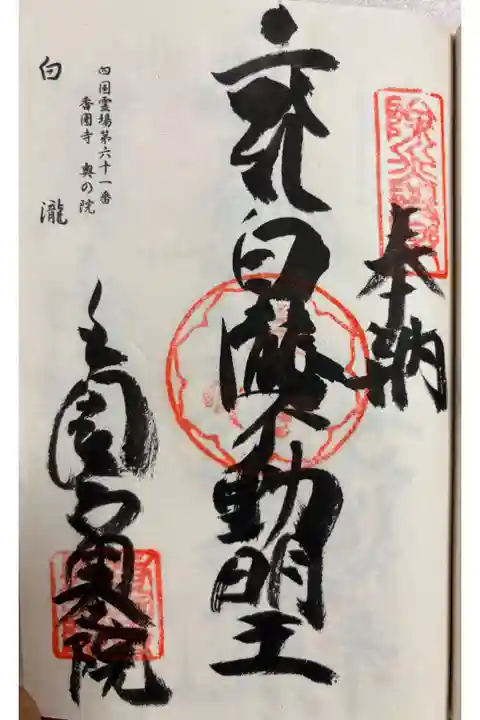 奉納
白瀧不動明王
四国霊場第六十一番
香園寺 奥の院
白瀧
香園寺奥之院